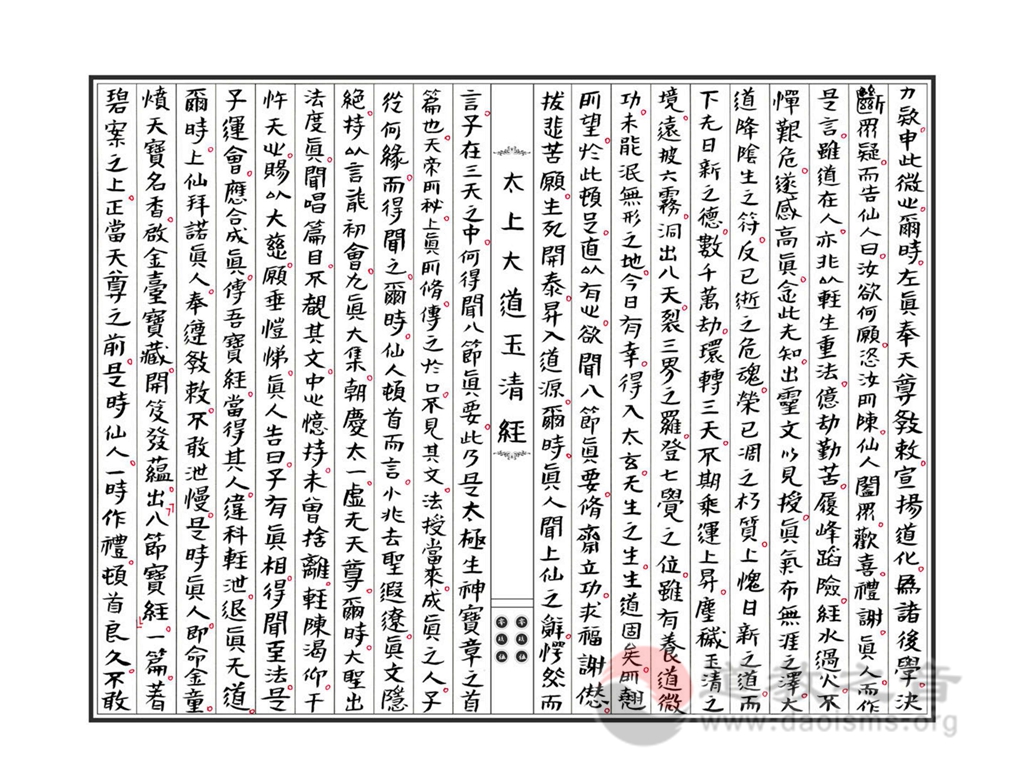 力欵申此微也爾時左眞奉天尊敎敕宣揚道化爲諸後學決
斷眾疑而告仙人曰汝欲何願恣汝所陳仙人闔眾歡喜禮謝眞人而作
是言雖道在人亦非以輕生重法億劫勤苦履峰蹈險經水過火不
憚艱危遂感高眞念此无知出靈文以見授眞氣布無涯之澤大
道降陰生之符反已逝之危魂榮已凋之朽質上愧日新之道而
下无日新之德數千萬劫環轉三天不期乘運上昇塵穢玉清之
境遠披六霧洞出八天裂三界之羅登七覺之位雖有養道微
功未能泯無形之地今日有幸得入太玄无生之生生道固矣所翹
所望於此頓足直以有也欲聞八節眞要脩齋立功求福謝愆
拔韭苦願生死開泰昇入道源爾時眞人聞上仙之辭愕然而
太上大道玉清經
言子在三天之中何得聞八節眞要此乃是太極生神寶章之首
篇也天帝所祕上眞所脩傳之於口不見其文法授當來成眞之人子
從何緣而得聞之爾時仙人頓首而言小兆去聖遐遼眞文隱
絕持以言能初會九眞大集朝慶太一虛无天尊爾時大聖出
法度眞聞唱篇目不覩其文中心憶持未曾捨離輕陳渴仰干
忤天也賜以大慈願垂愷悌眞人告曰子有眞相得聞至法是
子運會應合成眞傳吾寶經當得其人違科輕泄退眞无道
爾時上仙拜諾眞人奉遵敎敕不敢泄慢是時眞人即命金童
燌天寶名香啟金臺寶藏開笈發蘊出八節寶經一篇著
碧案之上正當天尊之前是時仙人一時作禮頓首良久不敢
道教之音
www.daoisms.org